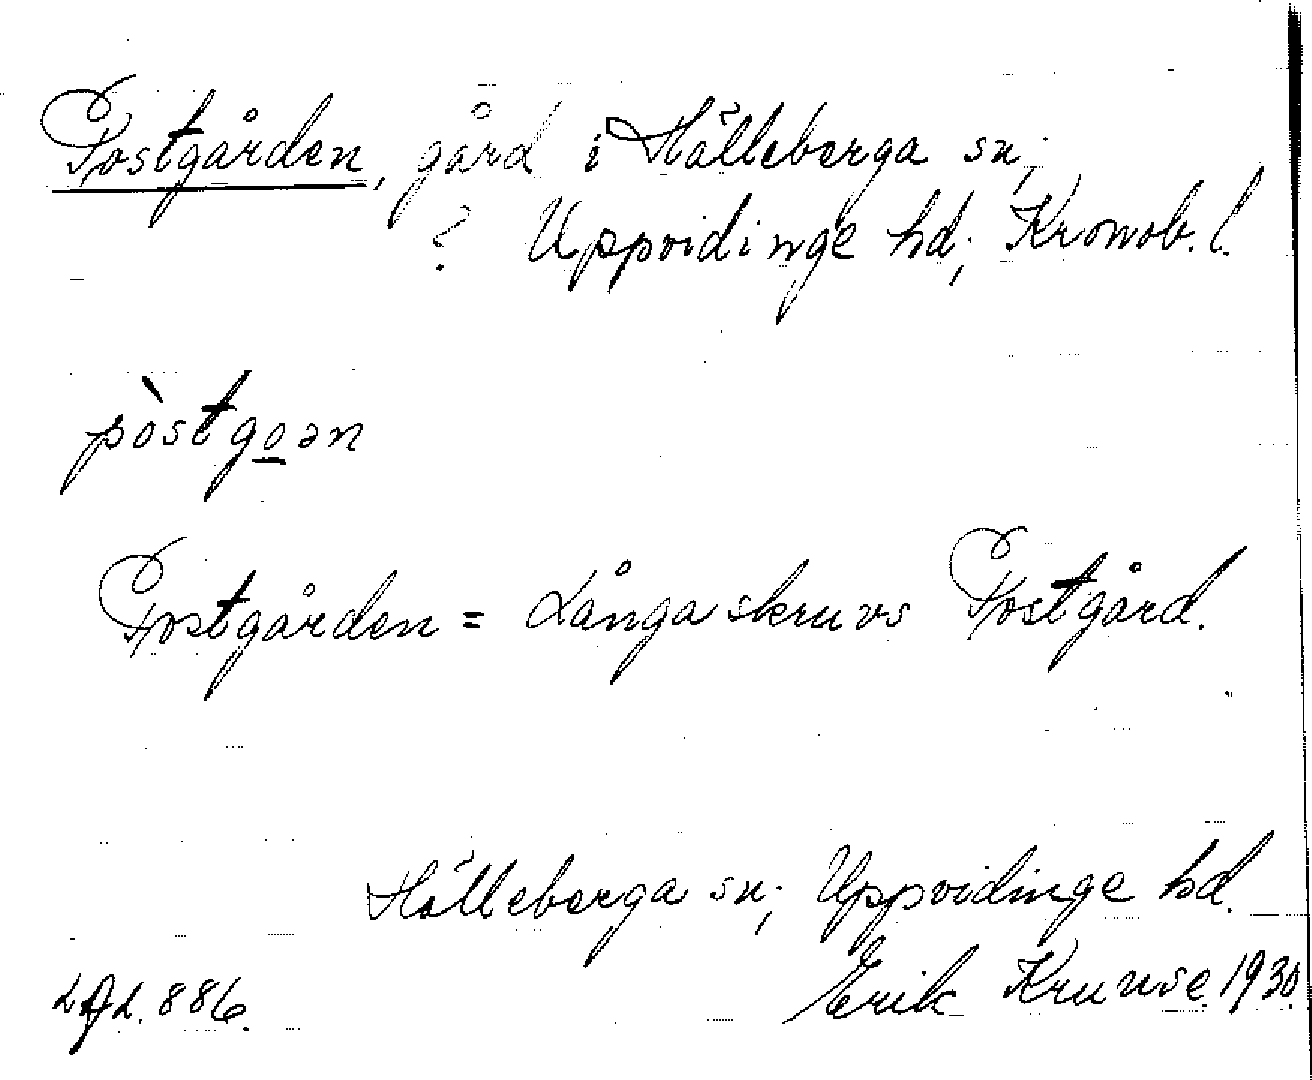 Postgården, gård i Hälleberga sn;
? Uppvidinge hd; Kronob. l.
pòstgo̲ən
Postgården = Långaskruvs Postgård.
Hälleberga sn; Uppvidinge hd.
LAL. 886. Erik Kruuse. 1930.